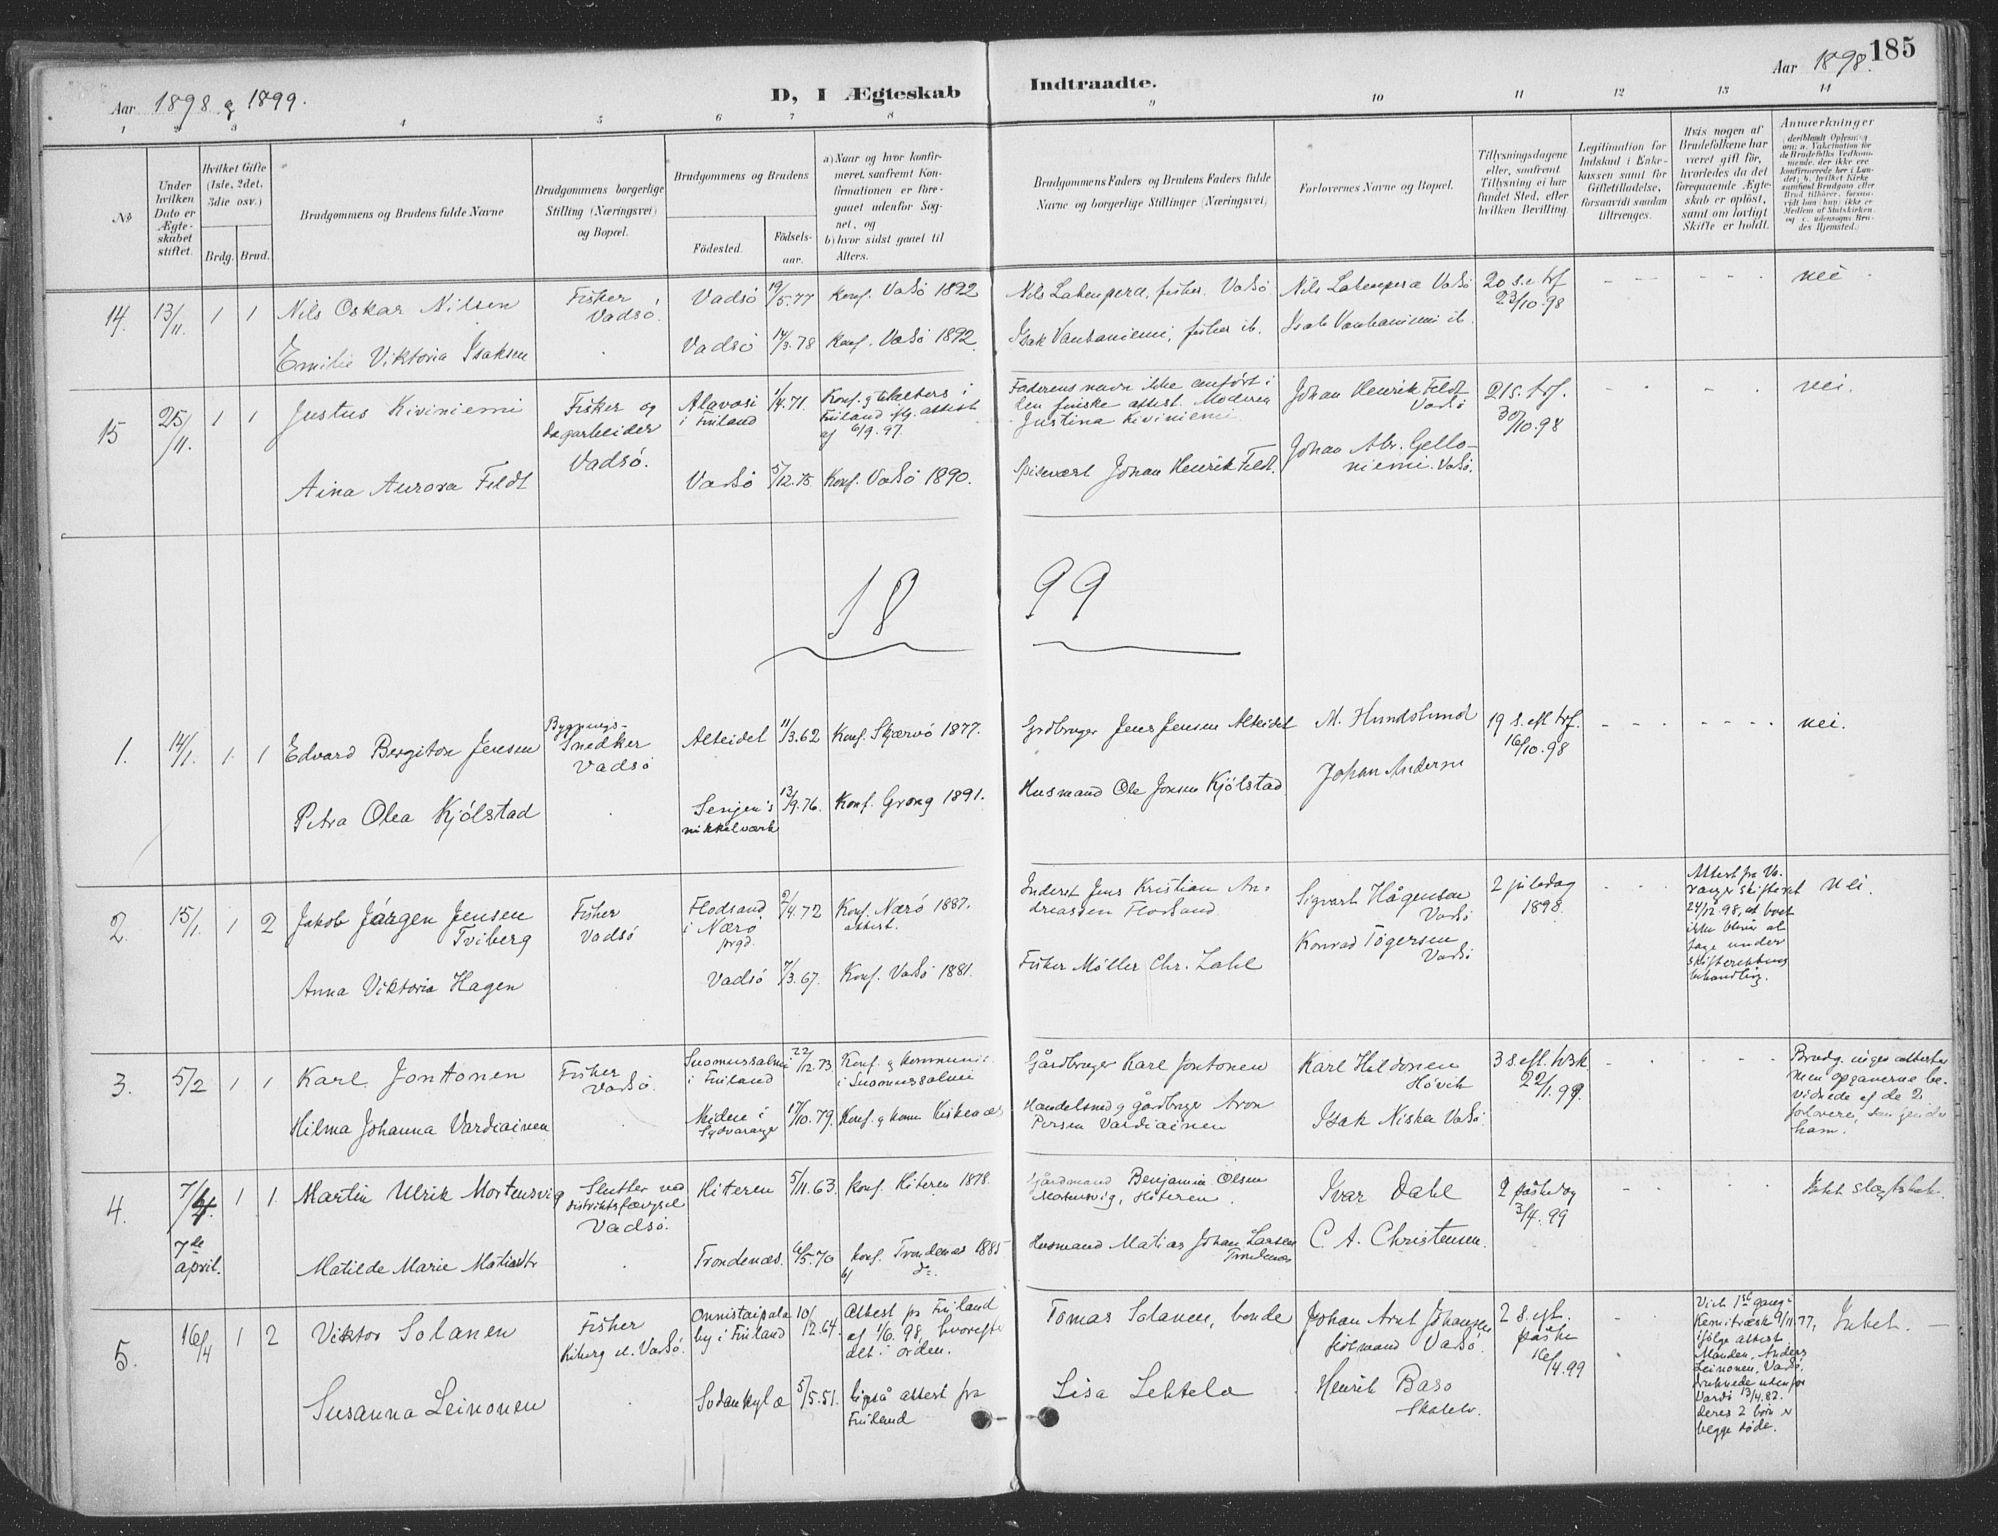 185
Aar 1898 & 1899.
D, I Ægteskab Indtraadte.
Aar 1898.
1 2 3 4 5 6 7 8 9 10 11 12 13 14
№
Under hvilken Dato er Ægteskabet stiftet.
Hvilket Gifte (1ste, 2det, 3die osv.)
Brdg. Brud.
Brudgommens og Brudens fulde Navne
Brudgommens borgerlige Stilling (Næringsvei) og Bopæl.
Brudgommens og Brudens
Födested. Födselsaar.
a) Naar og hvor konfirmeret, saafremt Konfirmationen er foregaaet udenfor Sognet, og
b) hvor sidst gaaet til Alters.
Brudgommens Faders og Brudens Faders fulde Navne og borgerlige Stillinger (Næringsvei)
Forlovernes Navne og Bopæl.
Tillysningsdagene eller, saafremt Tillysning ei har fundet Sted, efter hvilken Bevilling.
Legitimation for Indskud i Enkekassen samt for Giftetilladelse, forsaavidt saadan tiltrænges.
Hvis nogen af Brudefolkene har været gift før, hvorledes da det foregaaende Ægteskab er oplöst, samt om lovligt Skifte er holdt.
Anmærkninger
14. 13/11. 1 1 Nils Oskar Nilsen
Fisher Vadsö.
Vadsö 19/5.77 Konf. Vadsö 1892
Nils Lakenpera, fisher. Vadsö
Nils Lakenpera Vadsö
20 s.e trf 23/10.98
nei
Emilie Viktoria Isaksen
Vadsö 14/3.78 Konf. Vadsö 1892.
15 25/11. 1 1 Justus Kiviniemi
Fisker og dagarbeider Vadsö.
Alavosi i Finland 1/4.71
Finland iflg. attest af 6/9.97.
Faderens navn ikke anfört i den finske attest. Moderen Justina Kiviniemi
Johan Henrik Feldt Vadsö
21 s. trf. 30/10.98
nei.
Aina Aurora Feldt
Vadsö 5/12.75 Konf. Vadsö 1890.
Johan Henrik Feldt.
Johan Abr. Gelloniemi. Vadsö.
1899
1. 14/1. 1 1 Edvard Bergiton Jensen
Bygningssnedker Vadsö
Alteidet 11/3.62 Konf. Skjervö 1877.
Grdbruger Jens Jensen Alteidet
M. Hundslund
19 s. eft trf. 16/10.98
nei.
Petra Olea Kjölstad
Senjen's nikkelværk 13/9.76. Konf. Grong 1891.
Husmand Ole Jonsen Kjölstad
Johan Andersen
2. 15/1. 1 2 Jakob Jörgen Jensen Tviberg
Fisker Vadsö
Flodsand i Nærö prgd. 2/4.72 Konf. Nærö 1887. attest.
Inderst Jens Kristian Andreassen Flodsand.
Sigvart Hågensen Vadsö
2 juledag 1898.
Attest fra Varanger skifteret 24/12.98, at boet ikke bliver at tage under skifterettens behandling.
Nei.
Anna Viktoria Hagen
Vadsö 7/3.67. Konf. Vadsö 1881.
Fisker Möller Chr. Zahl
Konrad Tögersen Vadsö
3. 5/2 1 1 Karl Jontonen
Fisker Vadsö.
Suomussalmi i Finland 22/12.73 Konf. & kommunic. i Suomussalmi
Gårdbruger Karl Jontonen
Karl Hildonen Hövik
3 s. eft. h3k 22/1.99.
Brudg. ingen attester men opgaverne bevidnede af de 2 forlovere, som kjender ham.
Hilma Johanna Vardiainen
Sydvaranger 17/10.79.
Handelsmd & Gårdbruger Aron Persen Vardiainen
Isak Niska Vadsö.
4. 7/4. 7de april. 1 1 Martin Ulrik Mortensvig
Slutter ved distriktsfængsel Vadsö.
Hiteren 5/11.63. konf. Hiteren 1878.
Gårdmand Benjamin Olsen Mortensvig, Hiteren.
Ivar Dahl
2 påskedag 3/4.99
Matilde Marie Matiasdtr
Trondenæs. 6/5.70 konf. Trondenæs 1885
Husmand Matias Johan Larsen Trondenæs
C. A. Christensen.
5. 16/4 1 2 Viktor Solanen
Fisker Kiberg v. Vardö.
by i Finland 10/12.64.
Attest fra Finland af 1/6.98, hvorefter alt i orden.
Tomas Solanen, bonde
Johan Arnt Johansen
2 s. eft. påske 16/4.99
Intet. —
Susanna Leinonen
Sodankylæ 5/5.51. ligeså attest fra Finland
Lisa Lehtela
Henrik Baso
Manden, Anders Leinonen, Vardö, druknede udenfor Vardö 13/4.82. deres 2 börn er begge döde.